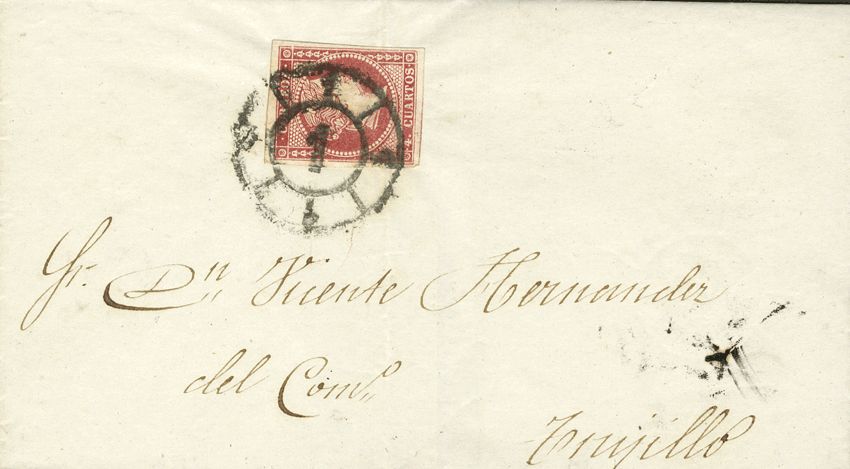 4. CUARTOS
1
Sr. Dn. Vicente Hernandez
del Como.
Trujillo